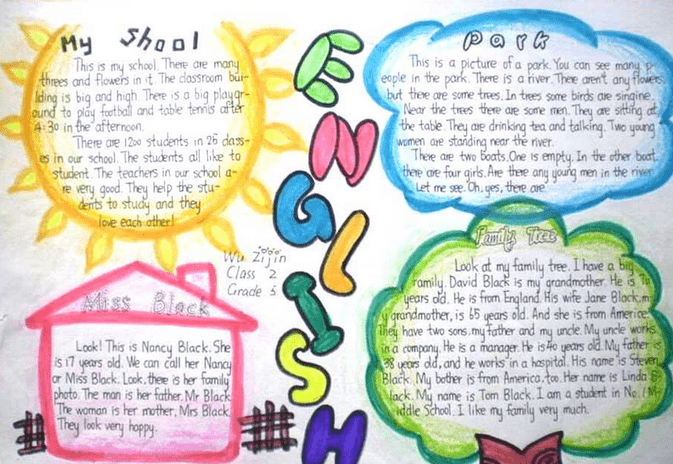 My Shool
This is my school. There are many
threes and flowers in it. The classroom bui-
lding is big and high. There is a big playgr-
ound to play football and table tennis after
4:30 in the afternoon.
There are 1200 students in 25 class-
es in our school. The students all like to
student. The teachers in our school a-
re very good. They help the stu-
dents to study and they
love each other!
ENGLISH
Park
This is a picture of a park. You can see many p-
eople in the park. There is a river. There aren't any flowers,
but there are some trees. In trees some birds are singine.
Near the trees there are some men. They are sitting at
the table. They are drinking tea and talking. Two young
women are standing near the river.
There are two boats. One is empty. In the other boat
there are four girls. Are there any young men in the river
Let me see. Oh, yes, there are
Wu Zijin
Class 2
Grade 3
Miss Black
Look! This is Nancy Black. She
is 17 years old. We can call her Nancy
or Miss Black. Look, there is her family
photo. The man is her father, Mr Black
The woman is her mother, Mrs Black.
They look very happy.
Family Tree
Look at my family tree. I have a big
family. David Black is my grandmother. He is
years old. He is from England. His wife Jane Black, m
y grandmother, is 65 years old. And she is from Americe.
They have two sons, my father and my uncle. My uncle works
in a company. He is a manager. He is 40 years old. My father is
38 years old, and he works in a hospital. His name is Steven
Black. My bother is from America, too. Her name is Linda B-
lack. My name is Tom Black. I am a student in No. 1 M-
iddle School. I like my family very much.